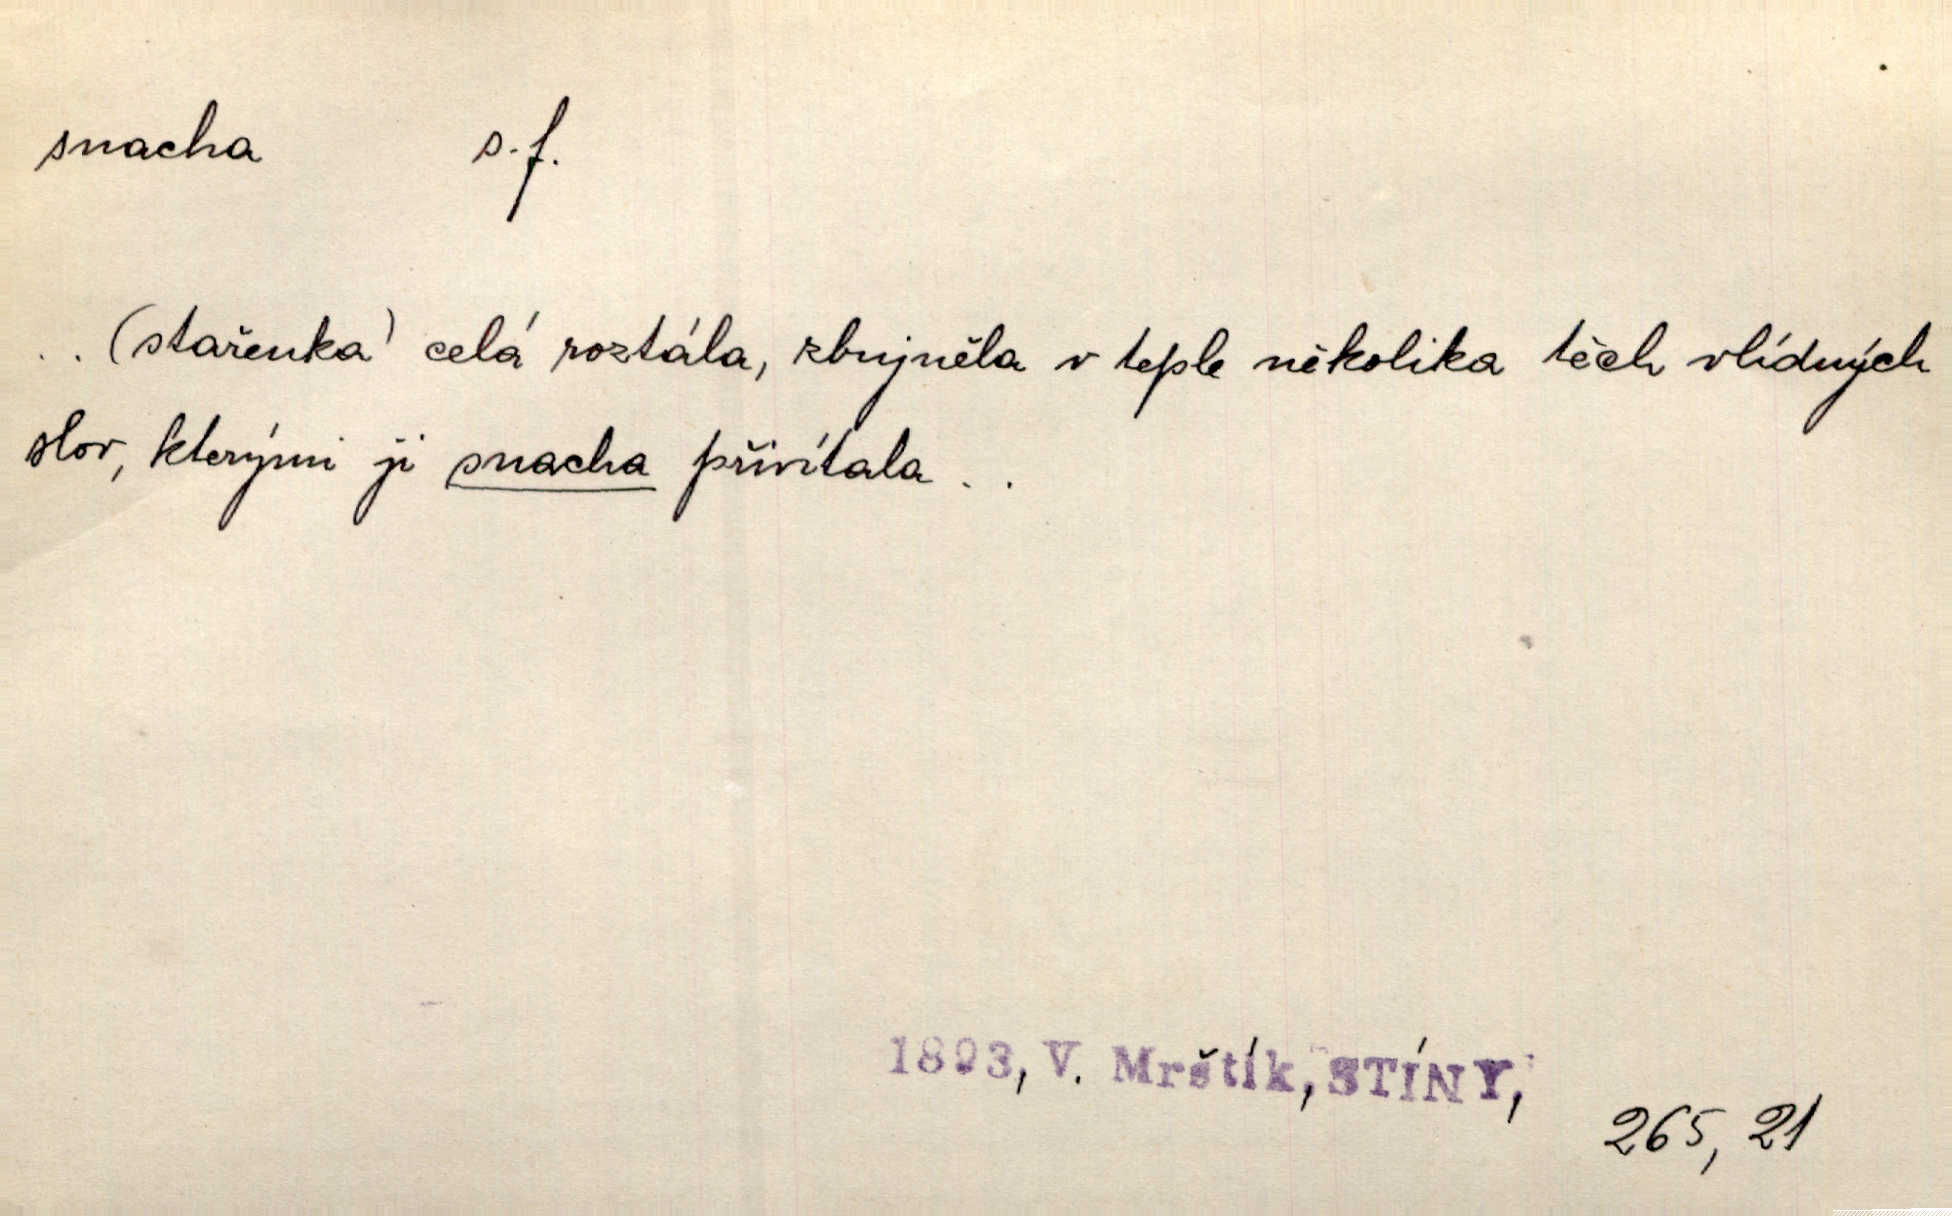 snacha s. f.
. . (stařenka) celá roztála, zbujněla v teple několika těch vlídných
slov, kterými ji snacha přivítala . .
1893, V. Mrštík, STÍNY,
265, 21